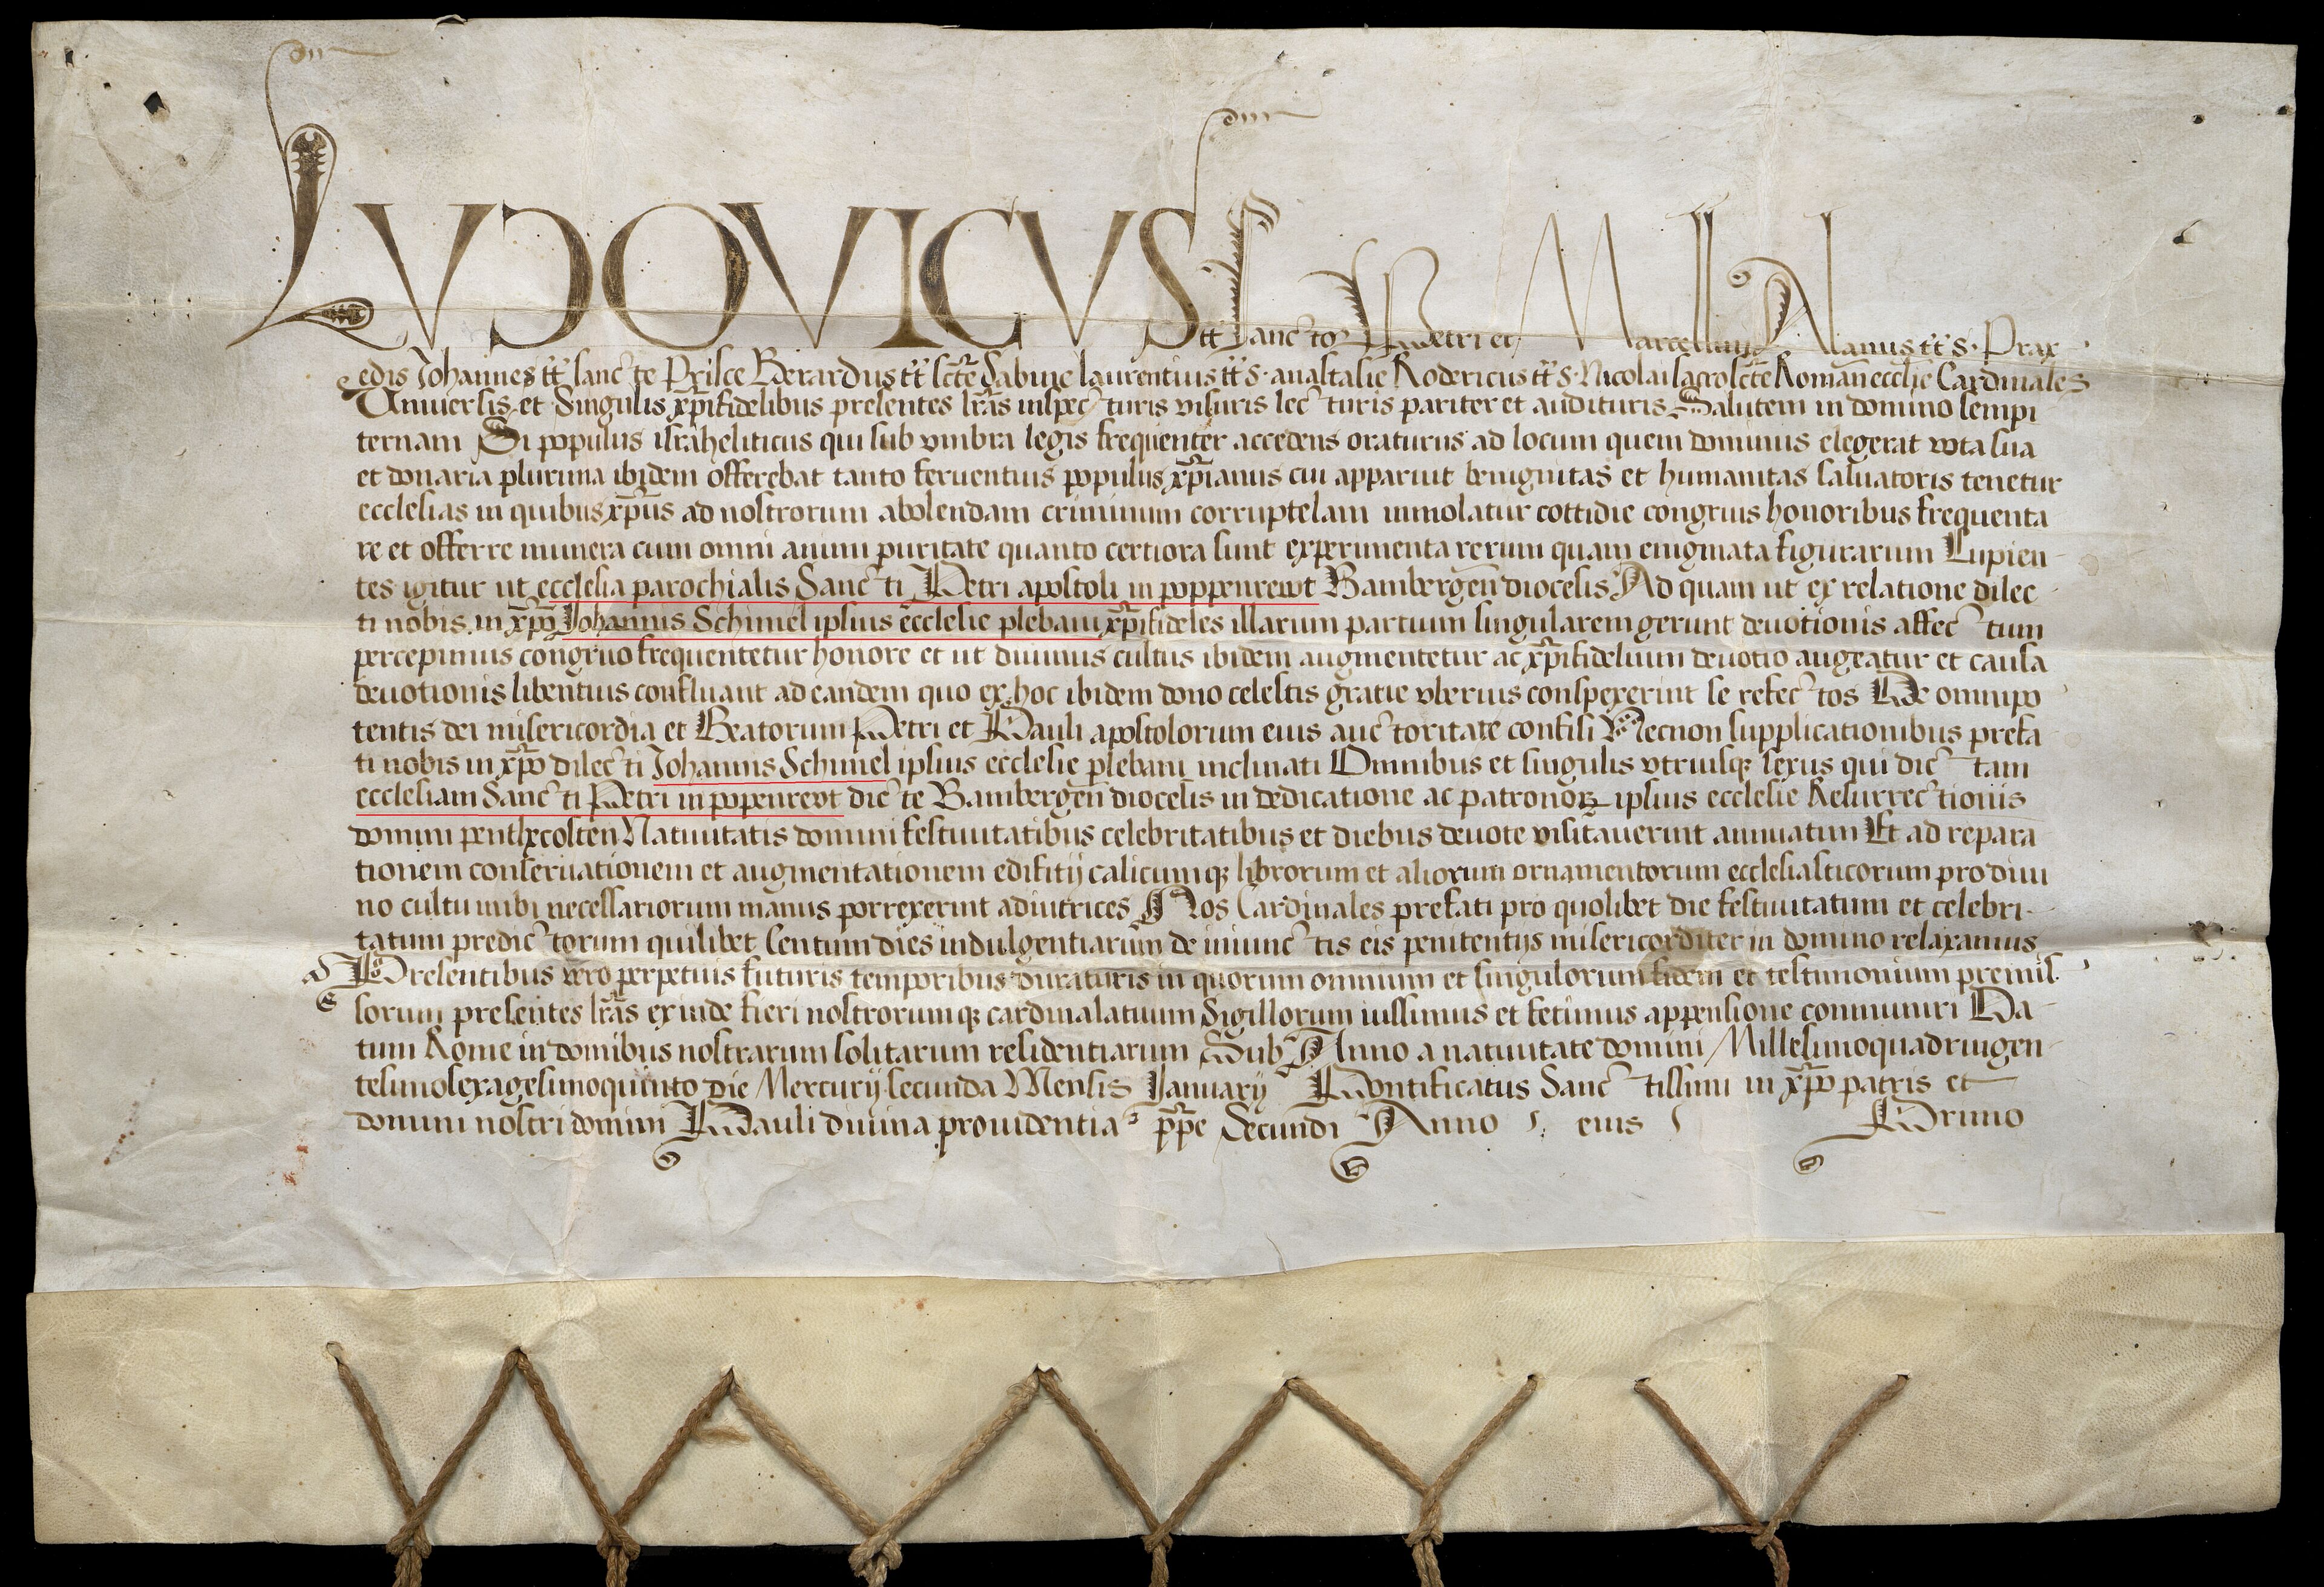 LUDOVICUS tt̄ Sanctoꝝ Petri et Marcellini Alanus tt̄ S. Prax
edis Johannes tt̄ sancte Prisce Berardus tt̄ sct̄e Sabine laurentius tt̄ s. anastasie Rodericus tt̄ s. Nicolai sacrosct̄e Roman̄ ecclie Cardinales
Vniuersis et Singulis xp̄ifidelibus presentes lr̄as inspecturis visuris lecturis pariter et audituris Salutem in domino sempi
ternam Si populus israheliticus qui sub vmbra legis frequenter accedens oraturus ad locum quem dominus elegerat vota sua
et donaria plurima ibidem offerebat tanto feruentius populus xp̄ianus cui apparuit benignitas et humanitas saluatoris tenetur
ecclesias in quibus xp̄us ad nostrorum abolendam criminum corruptelam immolatur cottidie congruis honoribus frequenta
re et offerre munera cum omni animi puritate quanto certiora sunt experimenta rerum quam enigmata figurarum Cupien-
tes igitur ut ecclesia parochialis Sancti Petri apostoli in poppenrewt Bambergen̄ diocesis Ad quam ut ex relatione dilec-
ti nobis in xp̄o Johannis Schimel ipsius ecclesie plebani xp̄ifideles illarum partium singularem gerunt deuotionis affectum
percepimus congruo frequentetur honore et ut diuinus cultus ibidem augmentetur ac xp̄ifidelium deuotio augeatur et causa
deuotionis libentius confluant ad eandem quo ex hoc ibidem dono celestis gratie vberius conspexerint se refectos De omnipo
tentis dei misericordia et Beatorum Petri et Pauli apostolorum eius auctoritate confisi Necnon supplicationibus prefa
ti nobis in xp̄o dilecti Johannis Schimel ipsius ecclesie plebani inclinati Omnibus et singulis vtriusqꝫ sexus qui dictam
ecclesiam Sancti Petri in popenrevt dicte Bambergen̄ diocesis in dedicatione ac patronoꝝ ipsius ecclesie Resurrectionis
domini penthecosten Natiuitatis domini festiuitatibus celebritatibus et diebus deuote visitauerint annuatim Et ad repara
tionem conseruationem et augmentationem edifitij calicumqꝫ librorum et aliorum ornamentorum ecclesiasticorum pro diui
no cultu inibi necessariorum manus porrexerint adiutrices Nos Cardinales prefati pro quolibet die festiuitatum et celebri-
tatum predictorum quilibet Centum dies indulgentiarum de iniunctis eis penitentijs misericorditer in domino relaxamus
Presentibus vero perpetuis futuris temporibus duraturis in quorum omnium et singulorum fidem et testimonium premis-
sorum presentes lr̄as exinde fieri nostrorumqꝫ cardinalatuum Sigillorum iussimus et fecimus appensione communiri Da-
tum Rome in domibus nostrarum solitarum residentiarum Sub Anno a natiuitate domini Millesimoquadringen-
tesimosexagesimoquinto die Mercurij secunda Mensis Januarij Pontificatus Sanctissimi in xp̄o patris et
domini nostri domini Pauli diuina prouidentia pp̄e Secundi Anno eius Primo